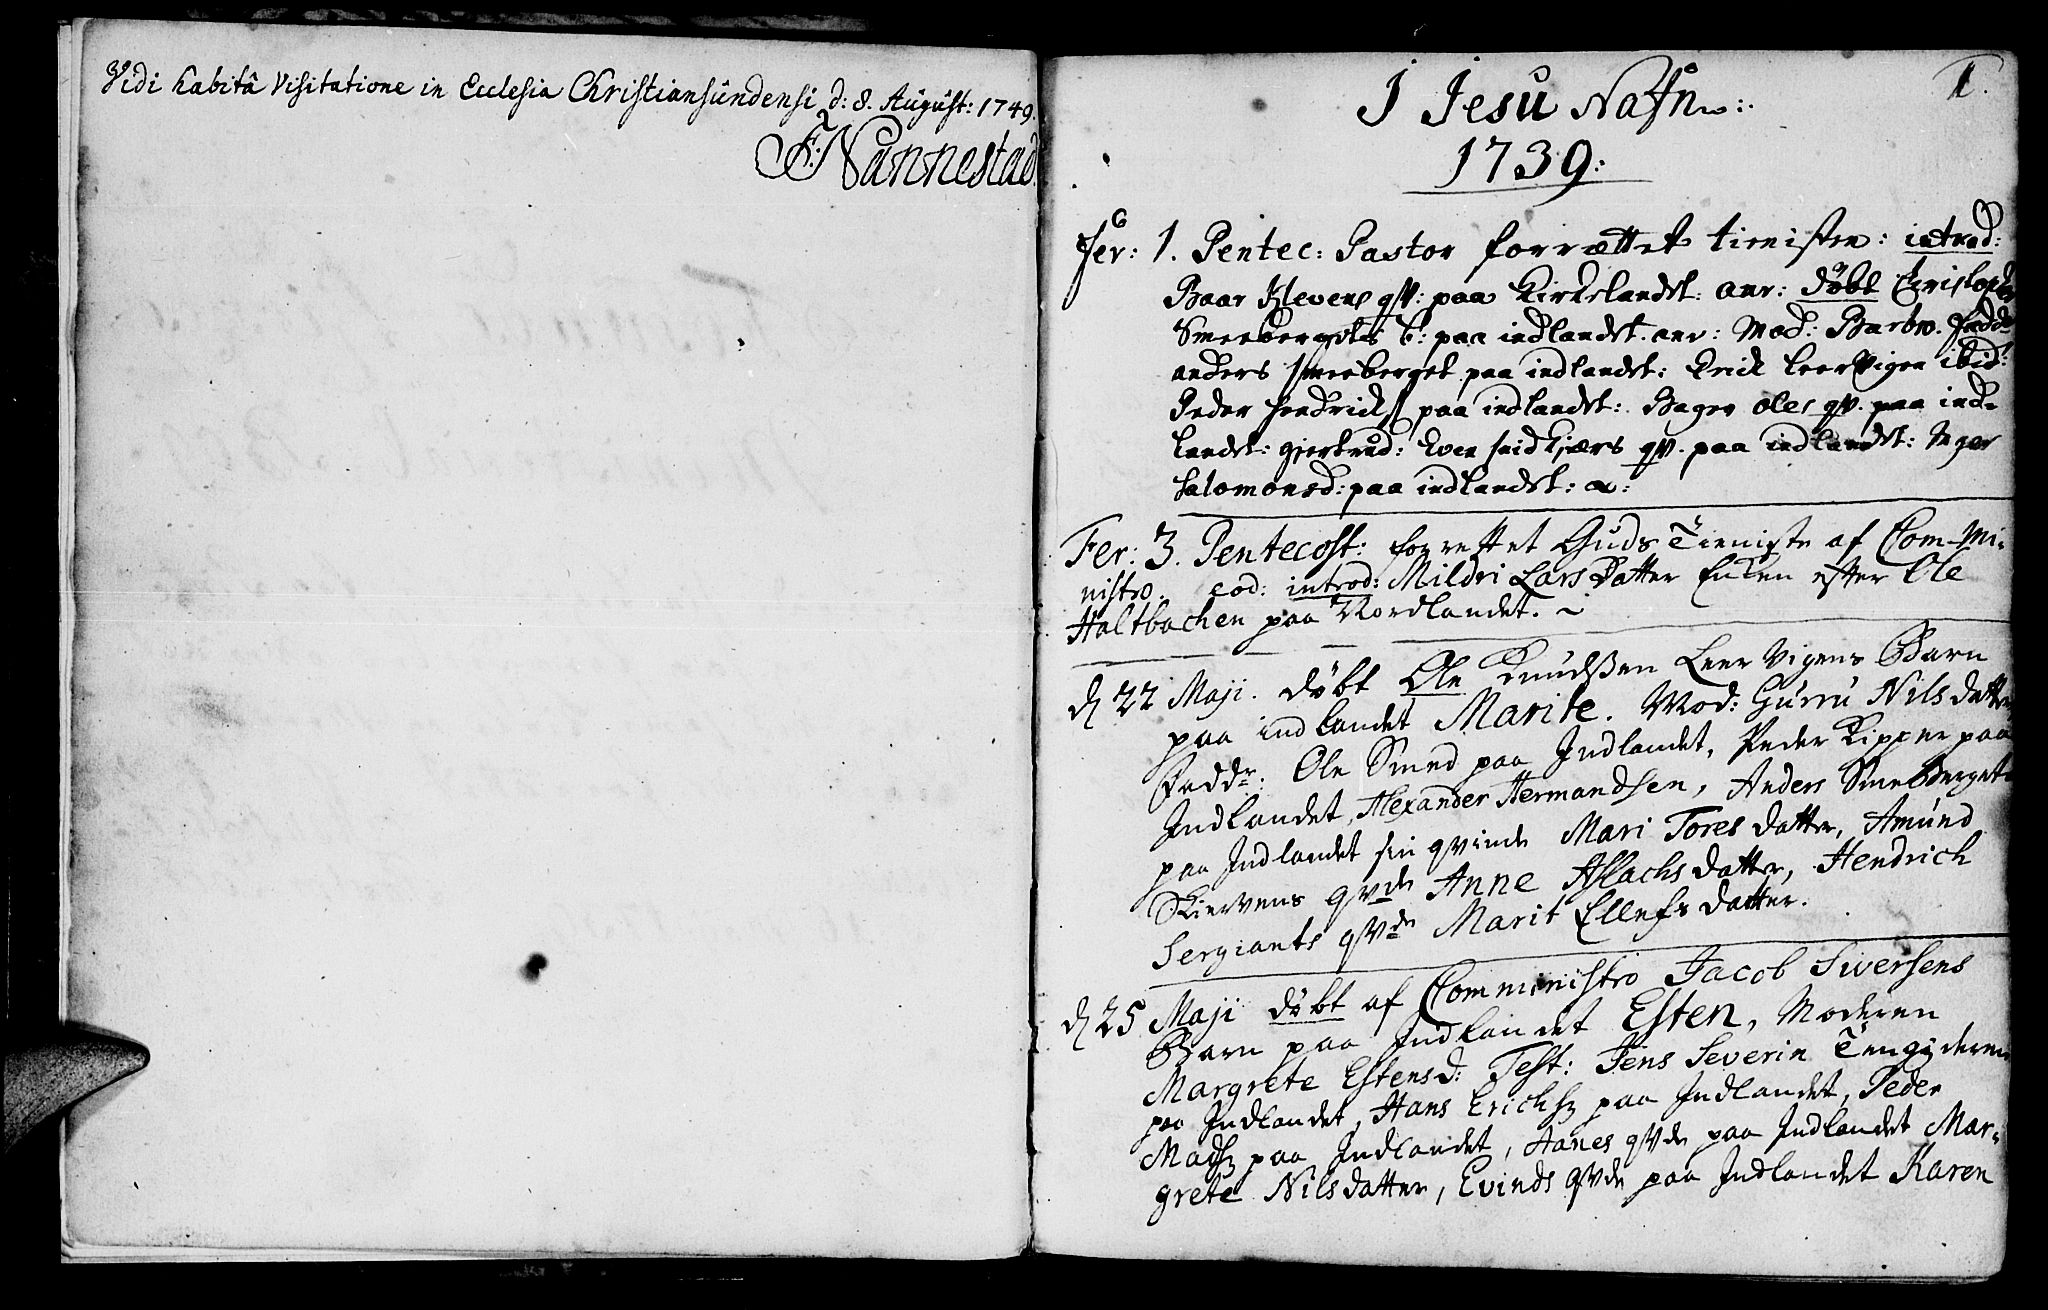 Vidi habitâ Visitatione in Ecclesia Christiansundensi d: 8. August: 1749.
F: Nannestad.
1.
I Jesu Nafn:
1739:
Fer: 1. Pentec: Pastor forrættet tienisten: introd:
Baar Klevens qv: paa Kirkelandet: anr: døbt Christopher
Smeebergets b: paa indlandet. anr: Mod: Barbro. Fadd:
anders smeeberget paa indlandet: Erick Leervigen ibid:
Peder Hendricks: paa indlandet: Bager Oles qv. paa ind-
landet: gjertrud: Even Smidkjærs qv. paa indlandet: Inger
Salomonsd: paa indlandet:
Fer: 3. Pentecost: forrettet Guds Tieniste af Com-Mi-
nistro. eod: introd: Mildri Lars Datter Enken efter Ole
Haltbachen paa Nordlandet.
d 22 Maji. døbt Ole Knudßen Leer Vigens Barn
paa indlandet Marite. Mod: Gurru Nils datter
Faddr: Ole Smed paa Indlandet, Peder Kipper paa
Indlandet, Alexander Hermandsen, Anders Smebberget
paa Indlandet sin qvinde Mari Tores datter, Amund
Skiervens qvde Anne Aslachs datter, Hendrich
Sergiants qvde Marit Ellefs datter.
d 25 Maji døbt af Comministro Jacob Siversens
Barn paa Indlandet Esten, Moderen
Margrete Estensd: Test: Jens Severin
paa Indlandet, Hans Erichs: paa Indlandet, Peder
Mads: paa Indlandet, Hanes qvde paa Indlandet Mar-
grete Nilsdatter, Evinds qvde paa Indlandet Karen